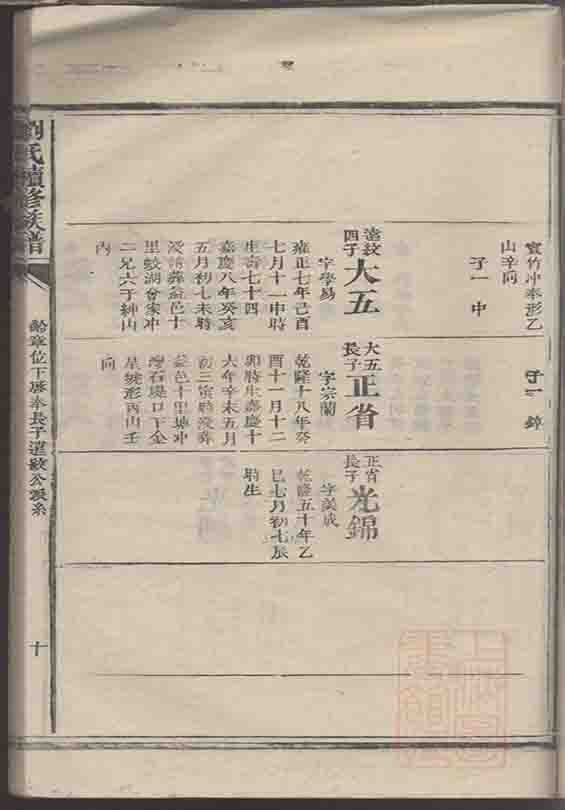 實竹冲奉形乙
山辛向
子一 中
遠紋
四子
大五
字學易
雍正七年己酉
七月十一申時
生壽七十四
嘉慶八年癸亥
五月初七未時
歿葬益邑十
里蛟湖會家冲
二兄六子紳山
內
子一 錦
大五
長子
正省
字宗蘭
乾隆十八年癸
酉十一月十二
卯時生嘉慶十
六年辛未五月
初三寅時歿葬
益邑十里塘冲
灣石堤口下金
星形丙山壬
向
正省
長子
光錦
字美成
乾隆五十年乙
巳七月初七辰
時生
劉氏續修族譜
位下房奉長子遠紋公派系
十